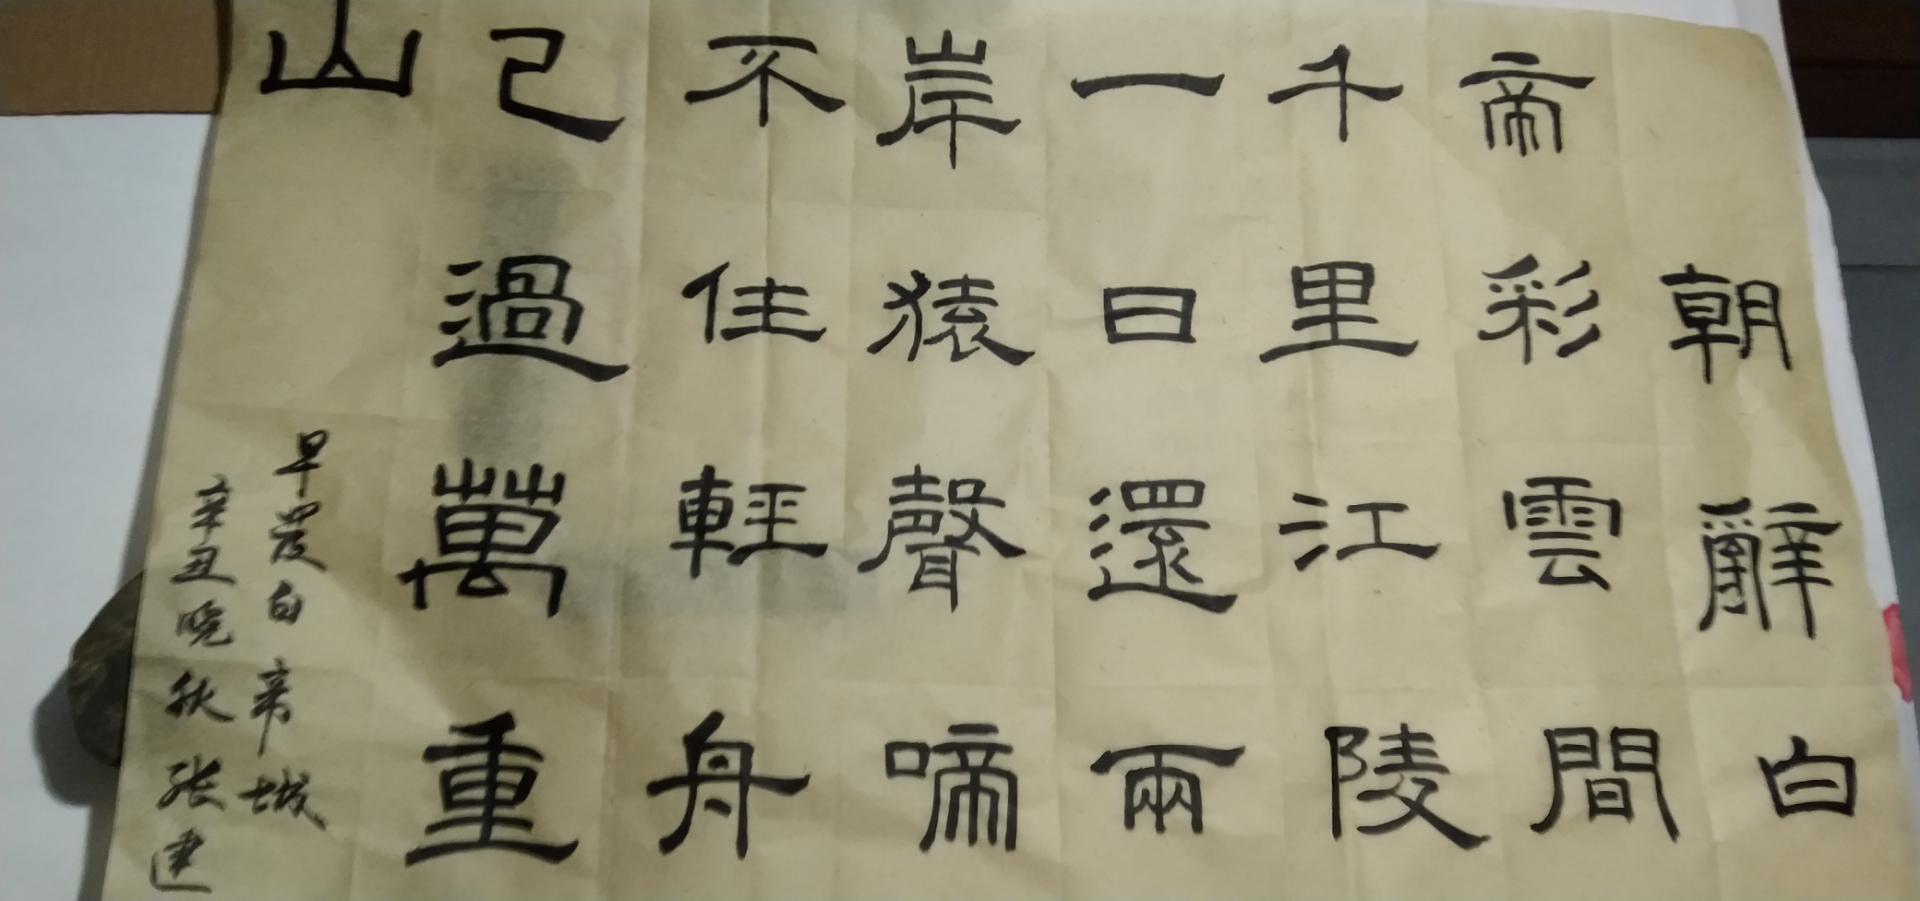 朝辭白
帝彩雲間
千里江陵
一日還兩
岸猿聲啼
不住輕舟
已過萬重
山
早發白帝城
辛丑晚秋张建